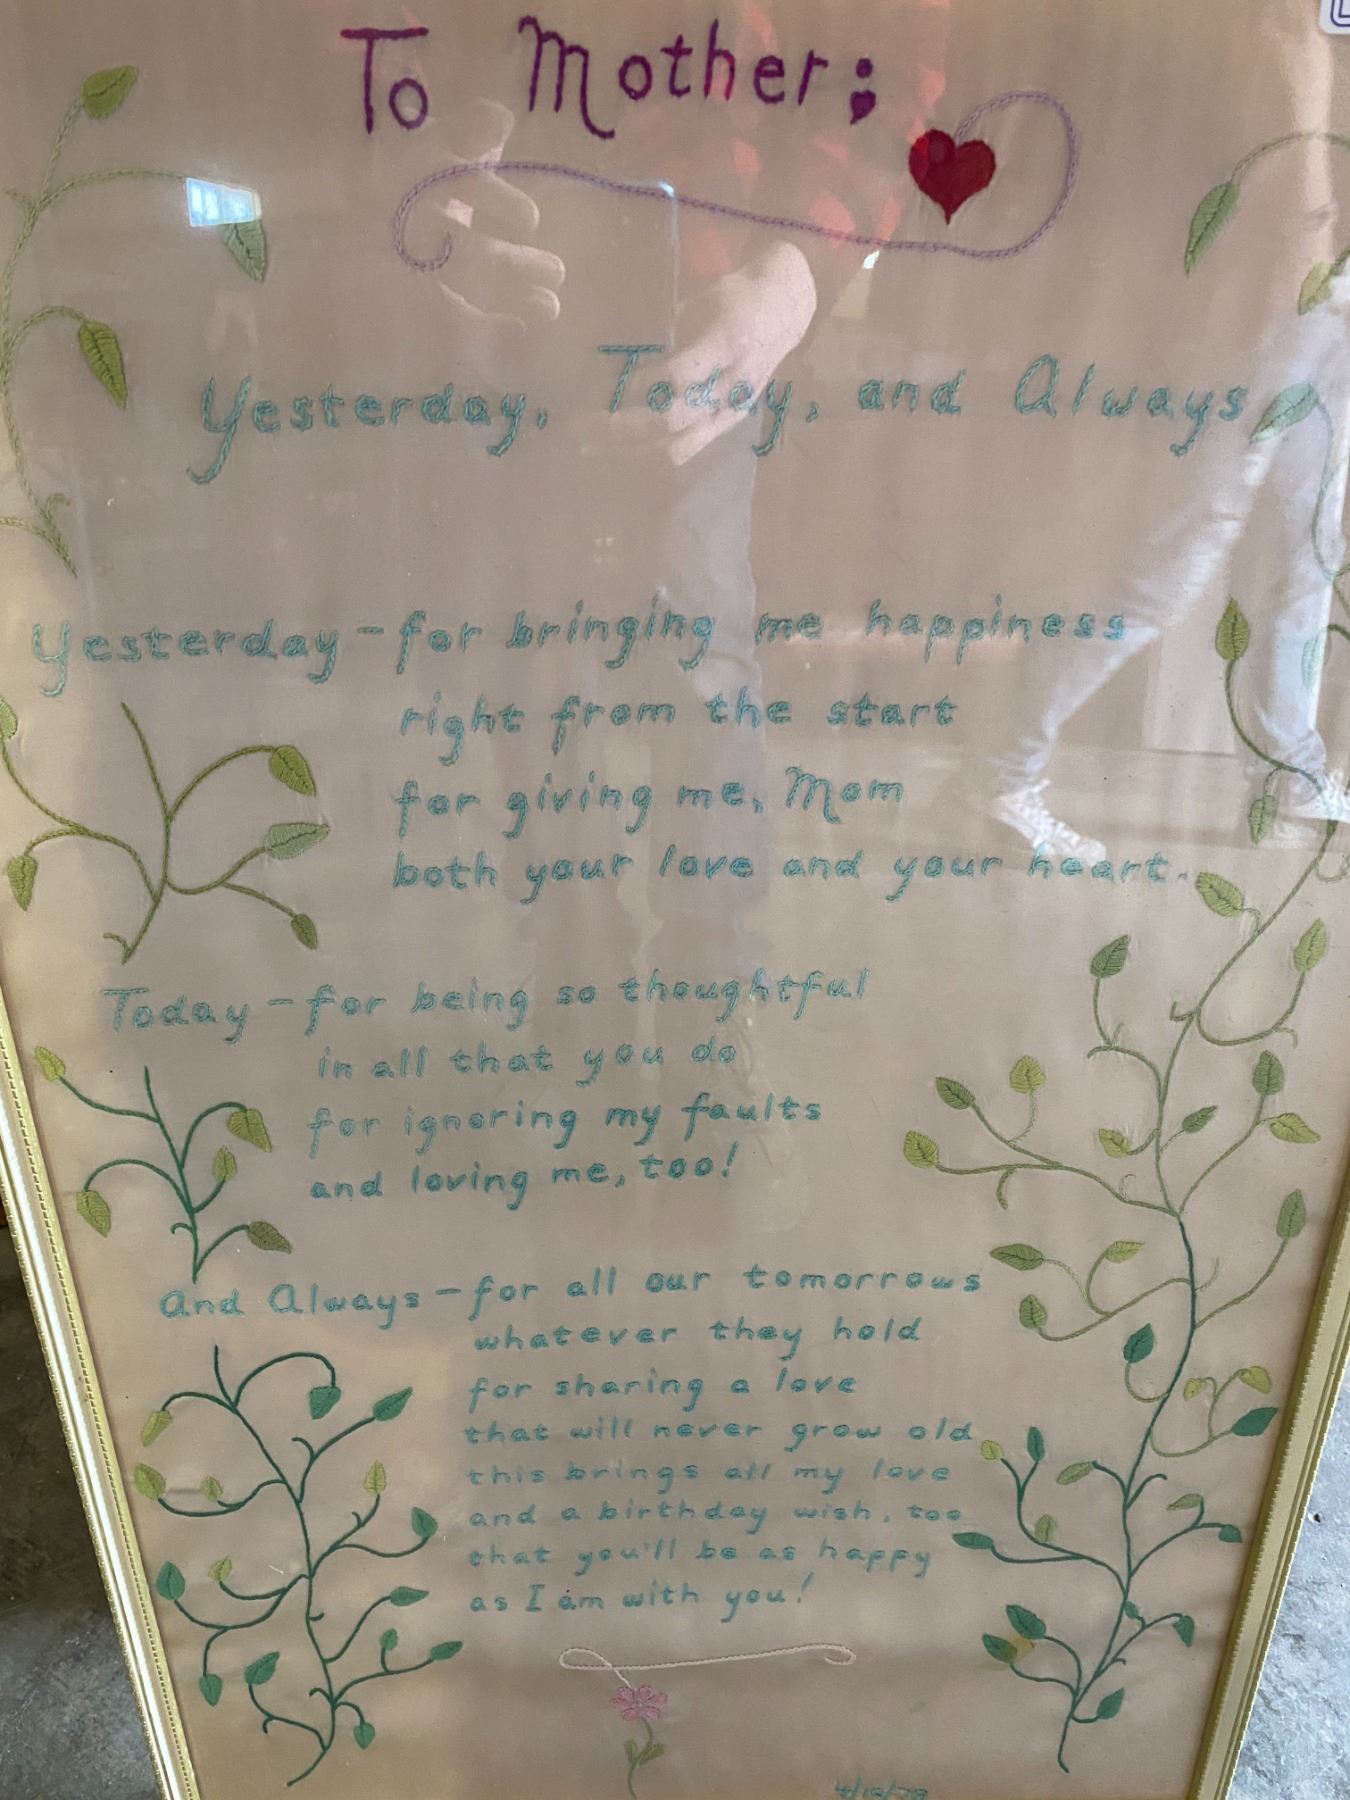 To Mother;
Yesterday, Today, and Always
Yesterday - for bringing me happiness
right from the start
for giving me, Mom
both your love and your heart.
Today - for being so thoughtful
in all that you do
for ignoring my faults
and loving me, too!
And Always - for all our tomorrows
whatever they hold
for sharing a love
that will never grow old
this brings all my love
and a birthday wish, too
that you'll be as happy
as I am with you!